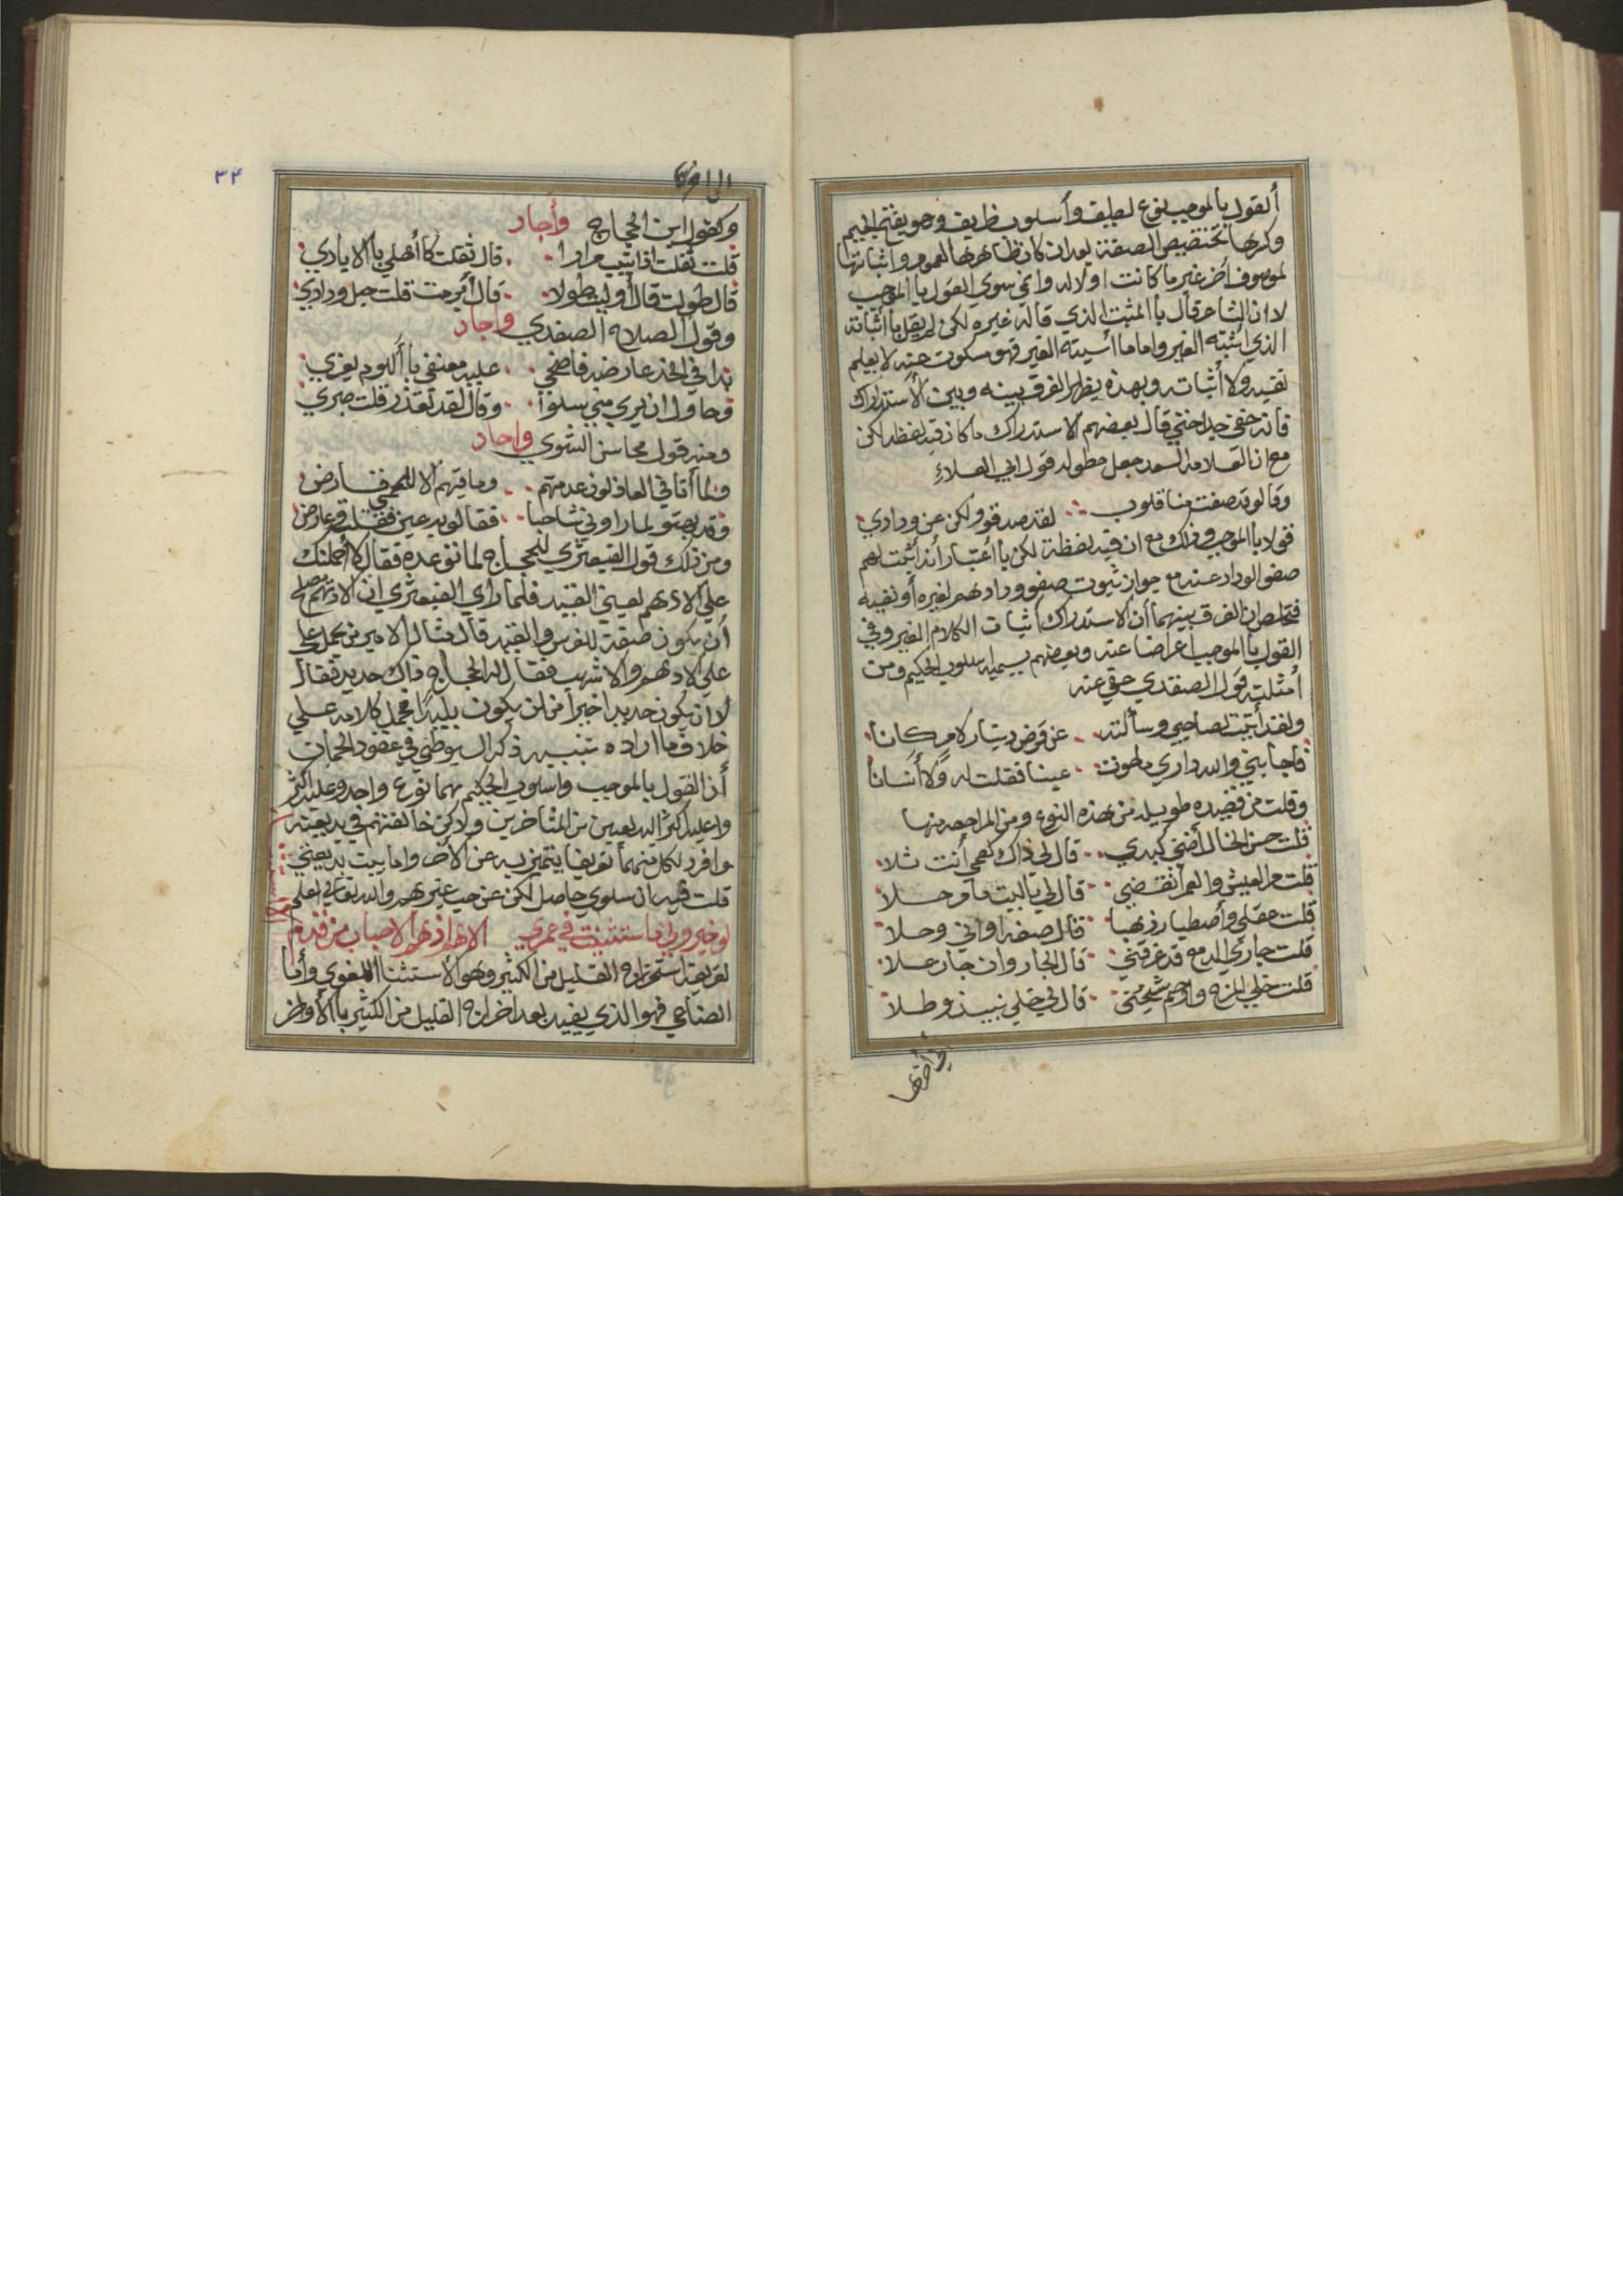 ألقول باالموجب نوع لطيف وأسلوب ظريف وهو بفتح الجيم
وكسرها تخصيص الصفة بعد ان كان ظاهرها العموم واثباتها
لموصوف أخر غير ما كانت اولا له واني سوى القول باالموجب
لاان الشاعر قال باالمثبت الذي قاله غيره لكن لم يقل باأثباته
الذي أثبته الغير واماما أسيته الغير فهو مسكوت عنه لا يعلم
نفيه ولا أثباته وبهذه يظهر الفرق بينه وبين الأستدراك
فانه خفي جدا حتي قال بعضهم الاستدراك ما كان فيه لفظه لكن
مع ان العلامه السعد جعل مطوله قول ابي العلاء
وقالو قد صفت منا قلوب لقد صدقوو لكن عن ودادي
قولا باالموجب وذلك مع ان فيه لفظة لكن باأعتبار أنه أثبت لهم
صفو الوداد عنه مع جواز ثبوت صفو ودادهم لغيره أو نفيه
فتخلص ان الفرق بينهما أن الاستدراك اثبات الكلام الغير وفي
القول باالموجب اعراضا عنه وبعضهم يسميه اسلوب الحكيم ومن
أمثلته قول الصفدي حقي عنه
ولقد أتيت لصاحبي وسألته عن قرض دينار لامر كانا
فاجابني والله داري ما حوت عينا فقلت له ولا أنسانا
وقلت من قصيده طويله من هذه النوع ومن المراجعه منها
قلت حسن الخال أضني كبدي قال لي ذاك نعمي أنت ثلا
قلت مر العيش والعمر أنقضي قال لي ياليت ما مر حلا
قلت عقلي وأصطباري ذهبا قال صفه اواني وحلا
قلت جاري الدمع قد غرقني قال الجار وان جار علا
قلت خلي المزه وارحم شجني قال لي خلي نبيذ وطلا
٣٤
وكقول ابن الحجاج وأجاد
قلت ثقلت اذا تيت مرارا قال ثقلت كاأهلي باالايادي
قال طولت قال أوليت طولا قال أبرمت قلت حبل ودادي
وقول الصلاح الصفدي واجاد
بدا في الخد عارضه فاضحي عليه معنفي باأللوم يغري
وحاول ان يري مني سلوا وقال لقد تعذر قلت صبري
ومنه قول محاسن الشوي واجاد
ولما أتاني العاذلون عدمتهم وما فيهم الا للحمي قارض
وقد بهتو لما راوني شاحبا فقالو به عين فقلت وعارض
ومن ذلك قول القبعثري للحجاج لما توعده فقال لاأحملنك
علي الادهم يعني القيد فلما راي القبعثري ان الادهم يصلح
أن يكون صفة للفرس والقيد قال مثال الامير من يحمل علي
علي الادهم والاشهب فقال له الحجاج ذاك حديد فقال
لاان يكون حديدا خيرا من ان يكون بليدا فحمل كلامه علي
خلاف ما اراده تنبيه ذكر السيوطي في عقود الجمان
أن القول باالموجب واسلوب الحكيم هما نوع واحد وعليه اكثر
واعليه اكثر البديعيين من المتأخرين ولاكن خالفتهم في بديعيته
وافرد لكل منهما تعريفا يتميز به عن الأخر واما بيت بديعيتي
قلت قيد ان سلوي حاصل لكن عن حب غيرهم والله تعالي اعلم
لو خيروني ما استثنيت في عمري الا نهار أذ نهوا الاحباب من قدم
تعريفه استخراج القليل من الكثير وهو الأستثنا اللغوي وأما
الصناعي فهو الذي يفيد بعد اخراج القليل من الكثير باالأواخر